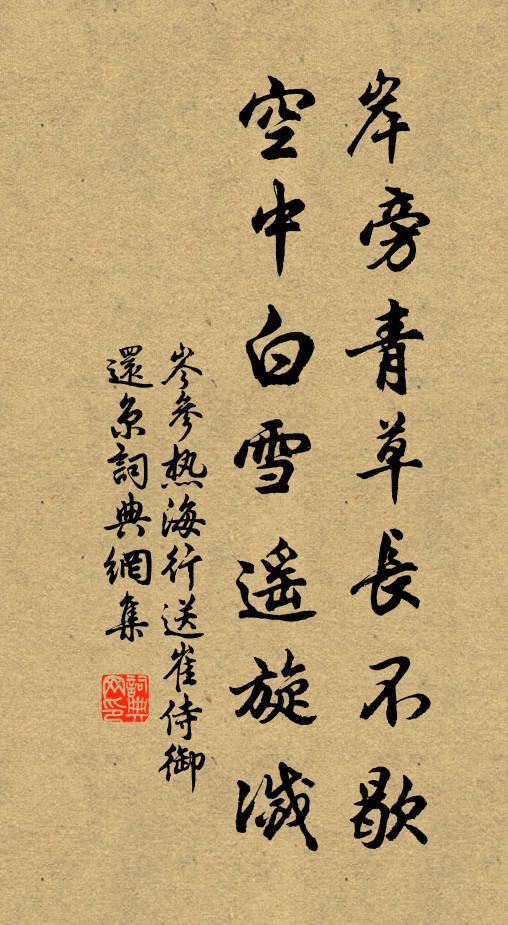 岸旁青草長不歇
空中白雪遥旋滅
岑參热海行送崔侍御
還京詞典網集